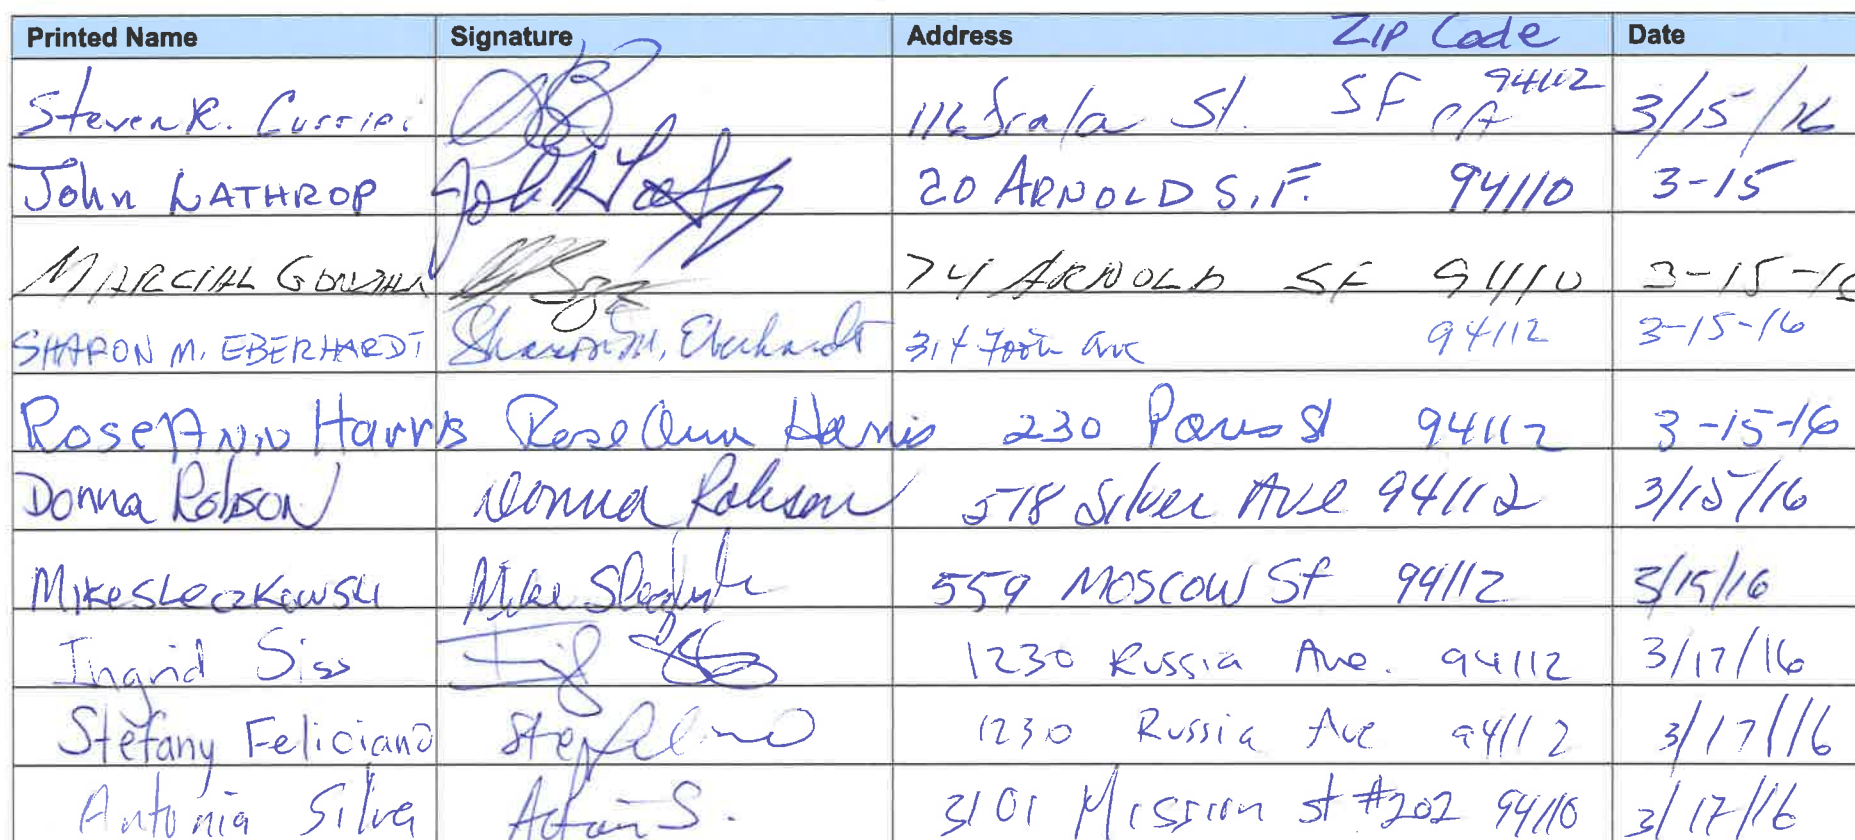 Printed Name Signature Address Zip Code Date
Steven R. 116 St. SF CA 94112 3/15/16
John LATHROP 20 ARNOLD S.F. 94110 3-15
MARCIAL 74 ARNOLD SF 94110 3-15-16
SHARON M. EBERHARDT Sharon M. Eberhardt 314 Ave 94112 3-15-16
RoseAnn Harris RoseAnn Harris 230 Paris St 94112 3-15-16
Donna Robson Donna Robson 518 Silver Ave 94112 3/15/16
Mike Sleczkowski Mike 559 Moscow St 94112 3/15/16
Ingrid Siss 1230 Russia Ave. 94112 3/17/16
Stefany Feliciano 1230 Russia Ave 94112 3/17/16
Antonia Silva S. 3101 Mission st #202 94110 3/17/16